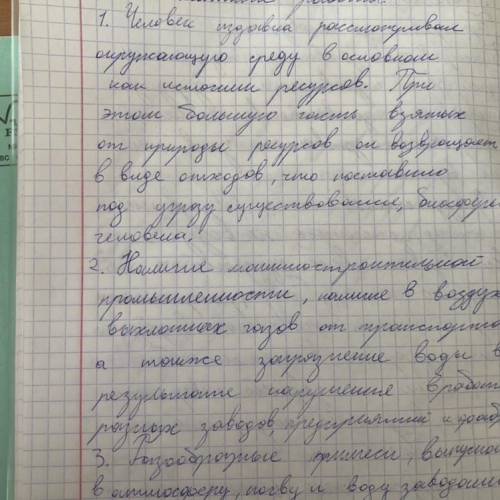 работы.
1. Человек издавна рассматривал
окружающую среду в основном
как источник ресурсов. При
этом большую часть взятых
от природы ресурсов он возвращает
в виде отходов, что поставило
под угрозу существование, биосферы
человека.
2. Наличие машиностроительной
промышленности, наличие в воздухе
выхлопных газов от транспорта
а также загрязнение воды в
результате нарушение в работе
разных заводов, предприятий и
3. Газообразные примеси,
в атмосферу, почву и воду заводами